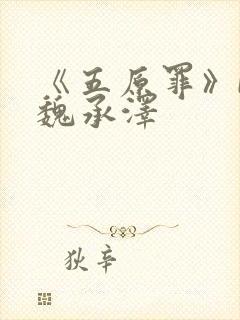 《五原罪》
魏承泽
狄辛